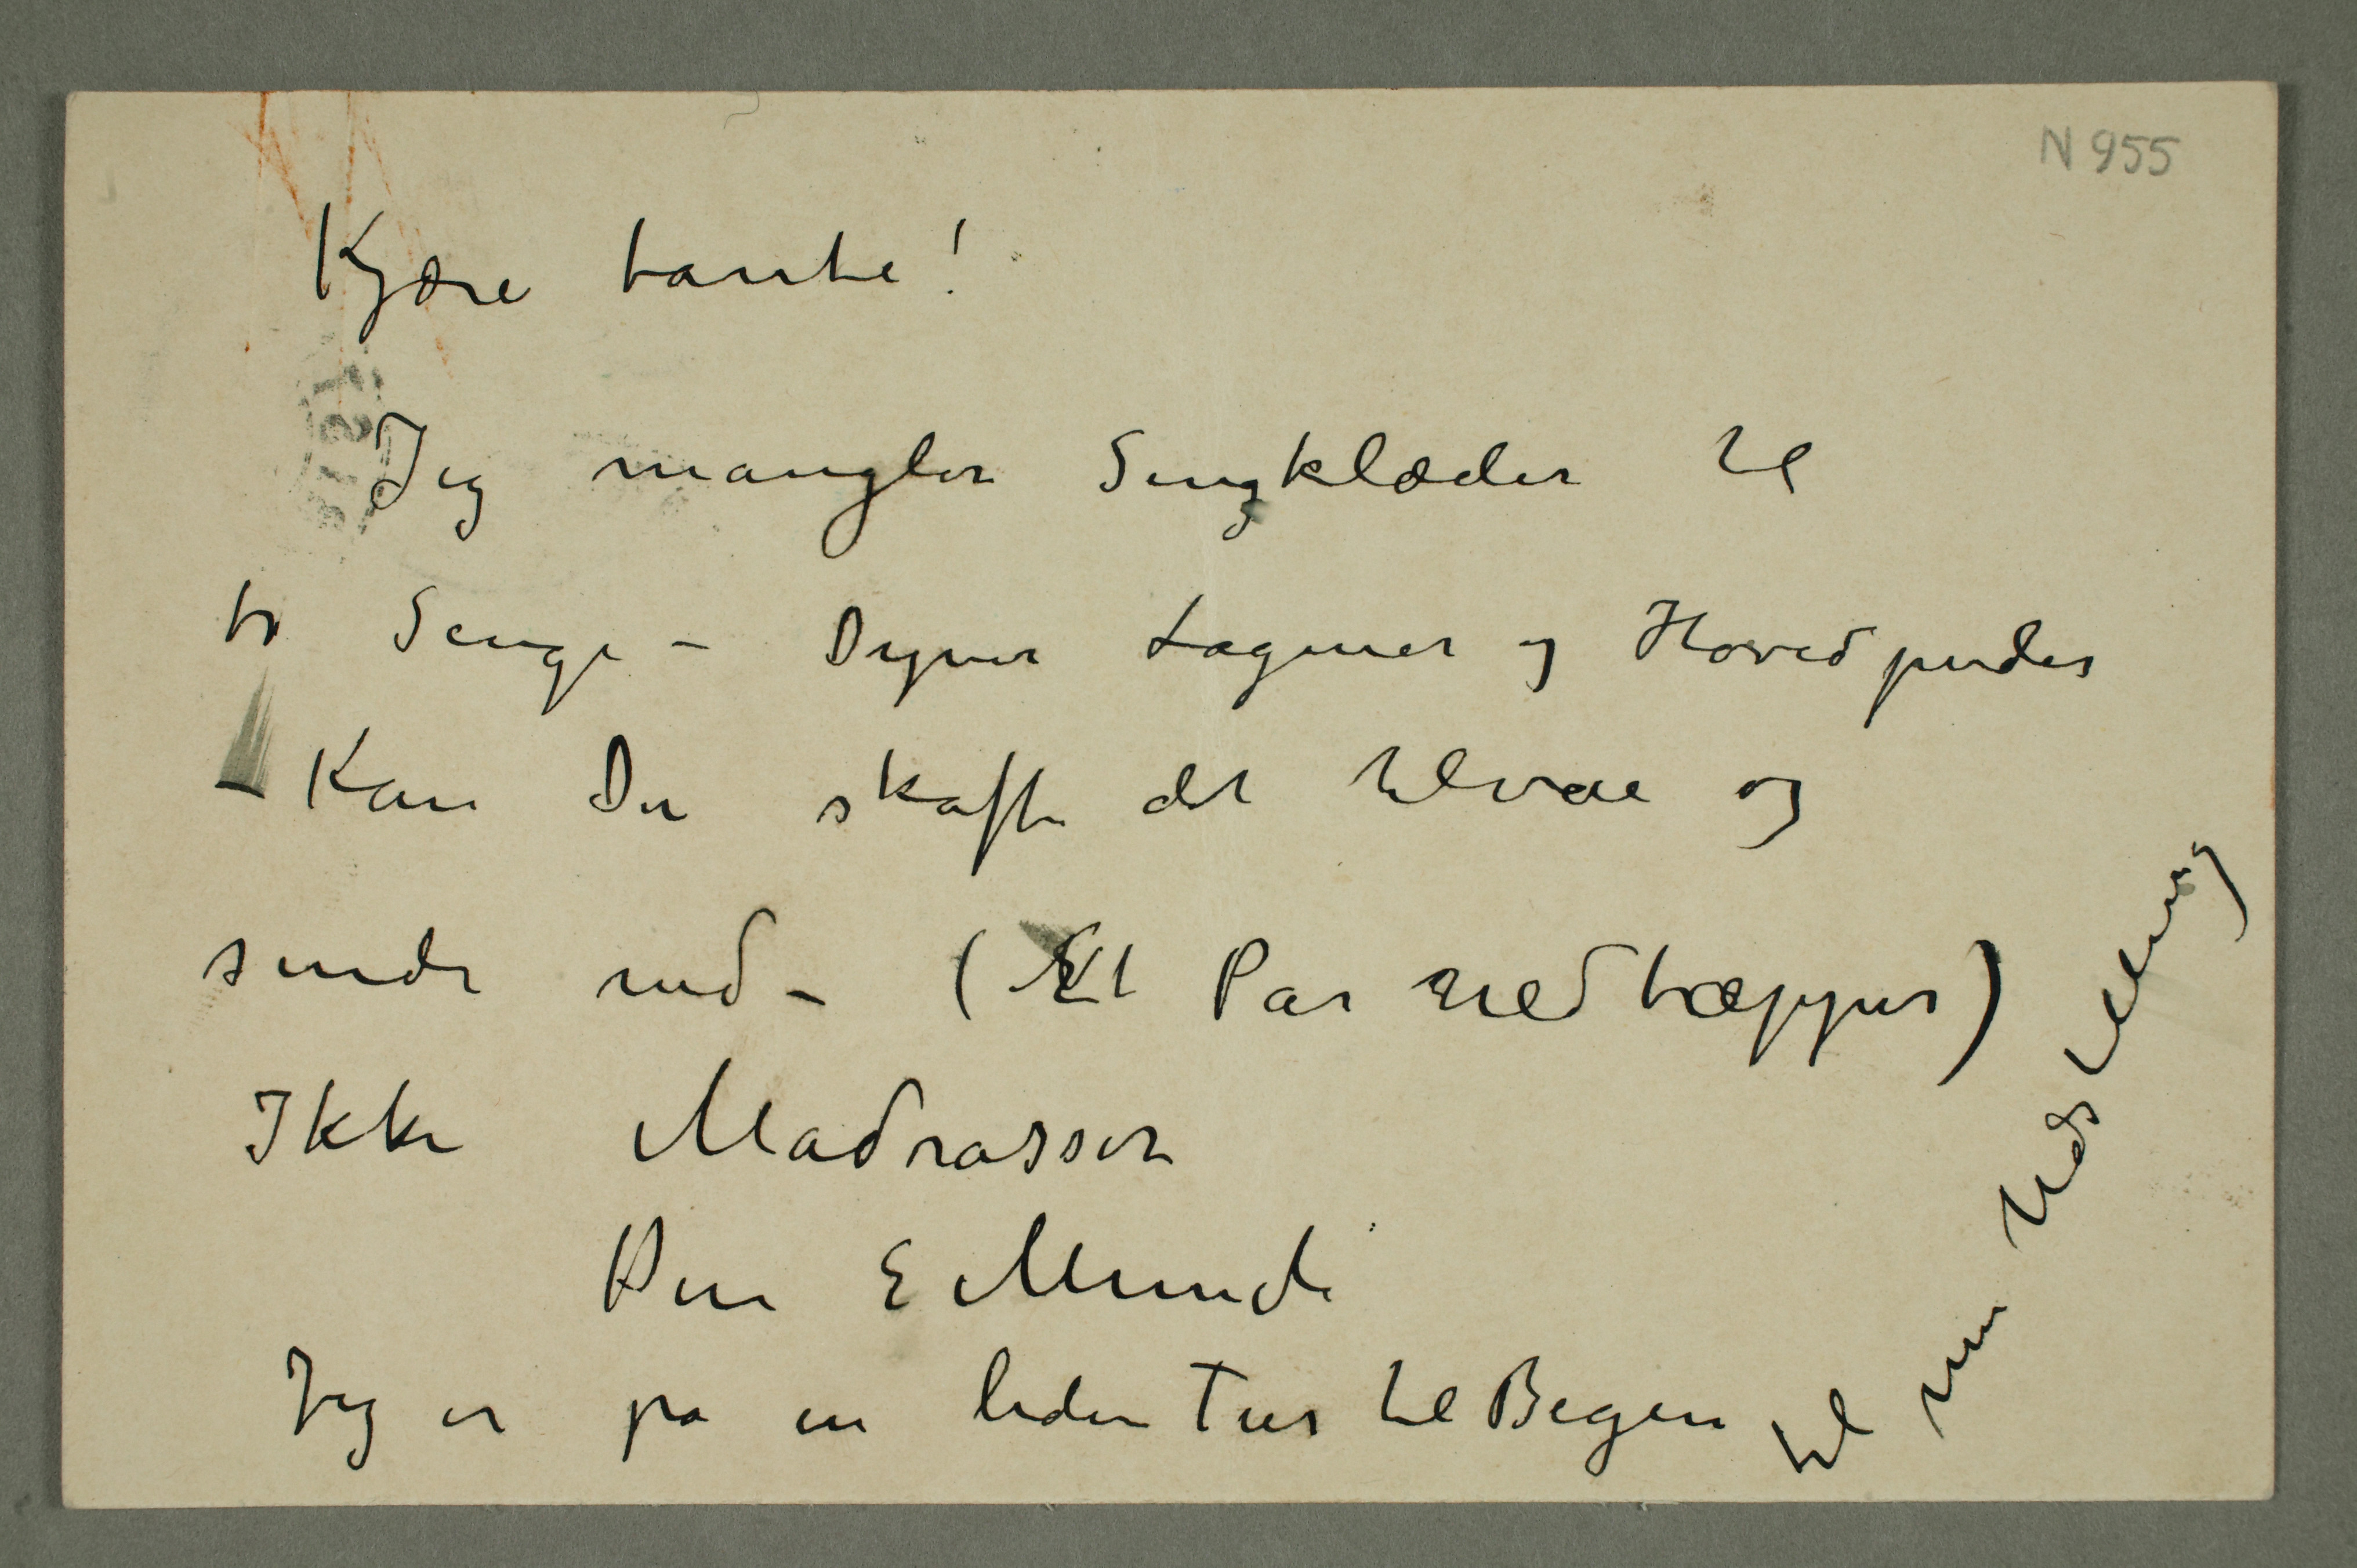 N 955
Kjære tante!
Jeg mangler Sengklæder til
to Senge – Dyner Lagener og Hovedpuder
– Kan Du skaffe det tilveie og
sende ned – (Et Par uldtæpper)
Ikke Madrasser
Din E Munch
Jeg er på en liden Tur til Bergen til min Udstilling